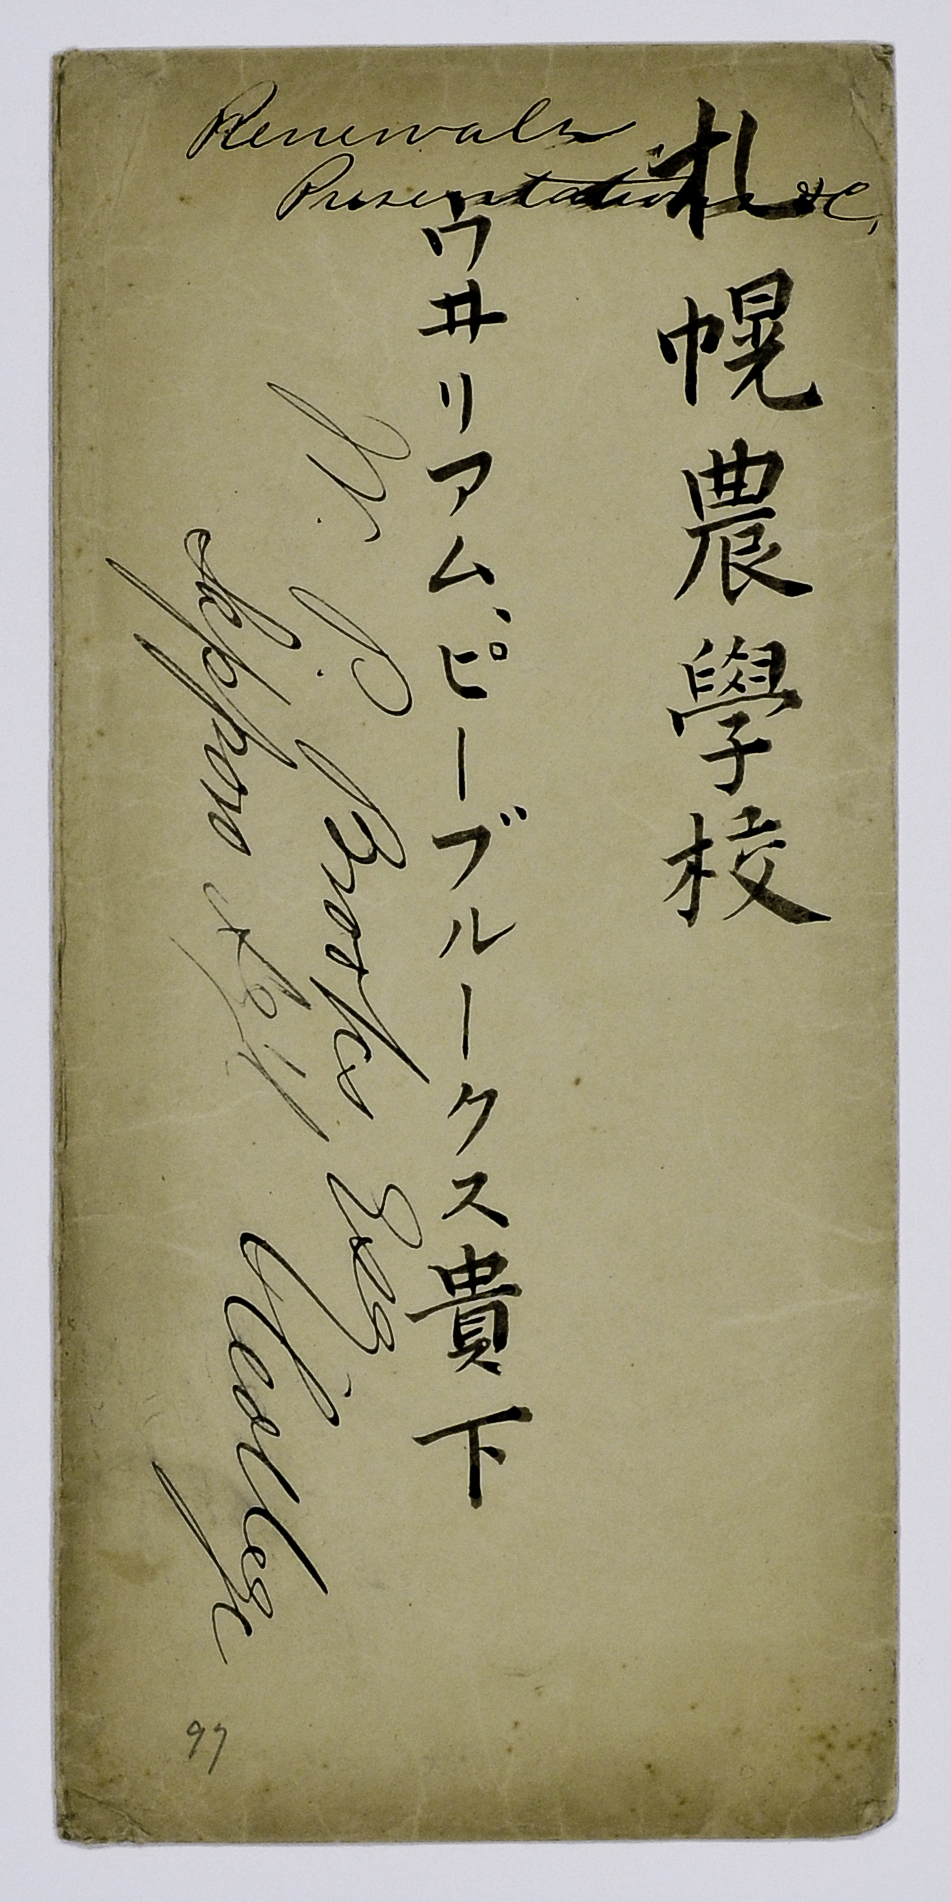 Renewals
Presentations &c,
札幌農學校
ウ井リアム、ピーブルークス貴下
W. P. Brooks Esq
Sapporo Agl College
97